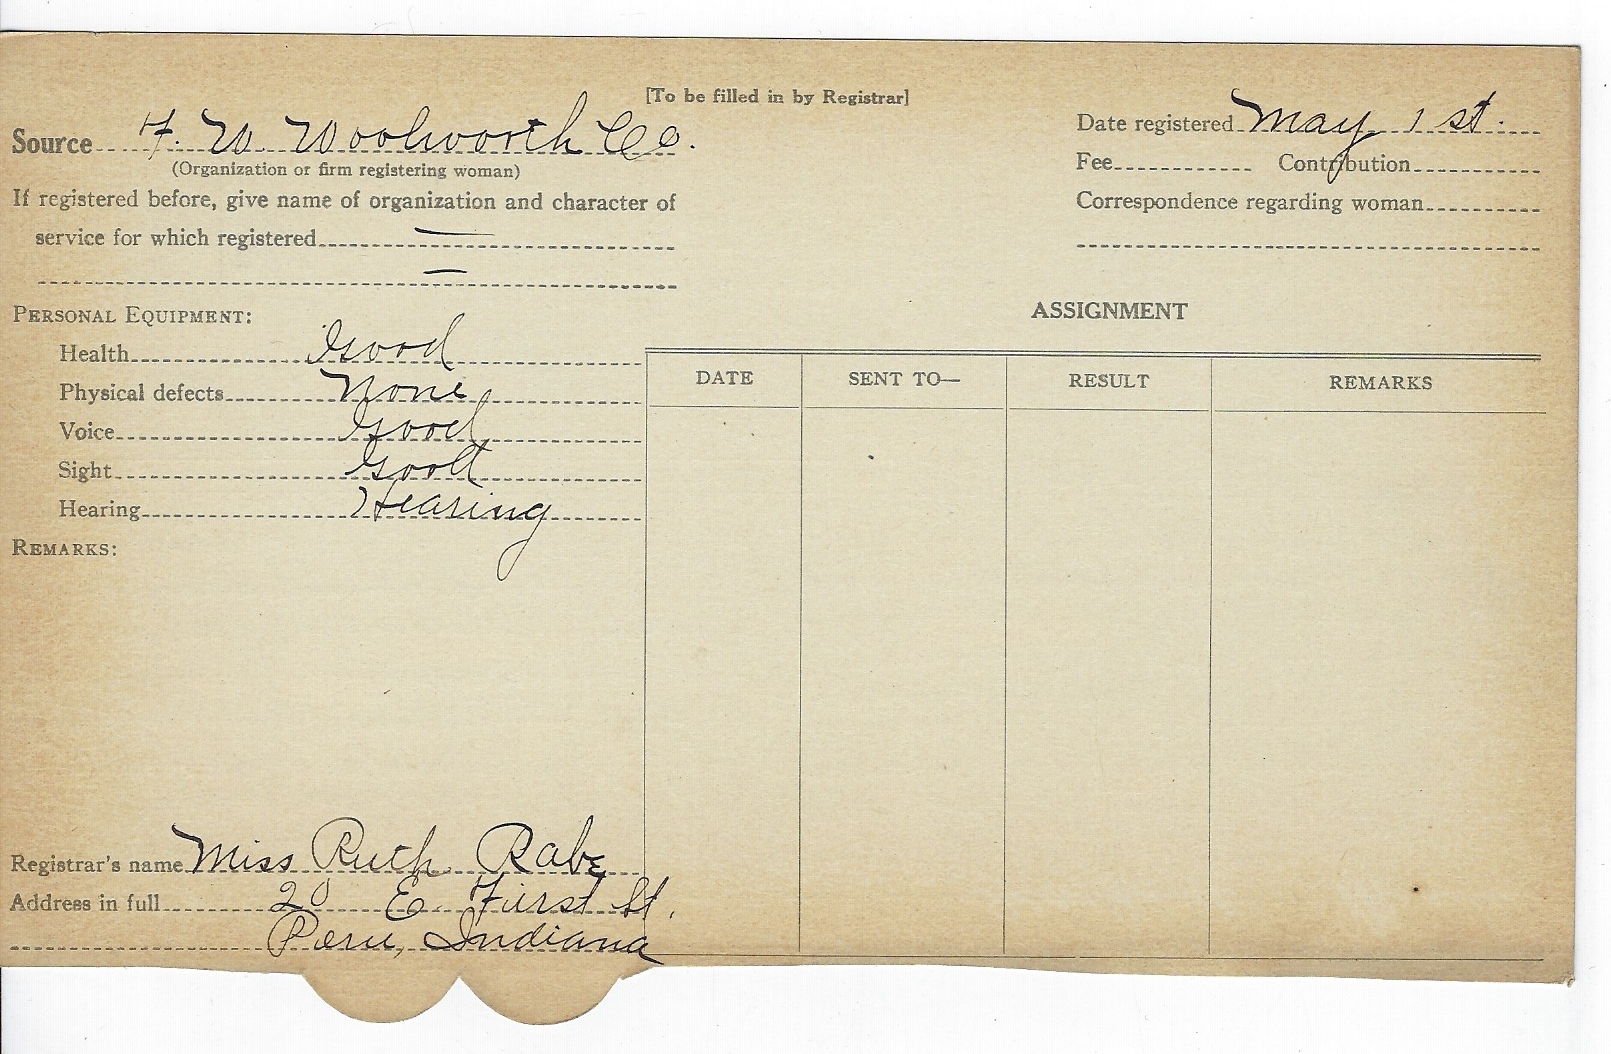 [To be filled in by Registrar]
Source F. W. Woolworth Co.
(Organization or firm registering woman)
If registered before, give name of organization and character of
service for which registered —
—
PERSONAL EQUIPMENT:
Health Good
Physical defects None
Voice Good
Sight Good
Hearing Hearing
REMARKS:
Registrar's name Miss Ruth Rabe
Address in full 20 E. First St.
Peru, Indiana
Date registered May 1st.
Fee Contribution
Correspondence regarding woman
ASSIGNMENT
DATE SENT TO— RESULT REMARKS